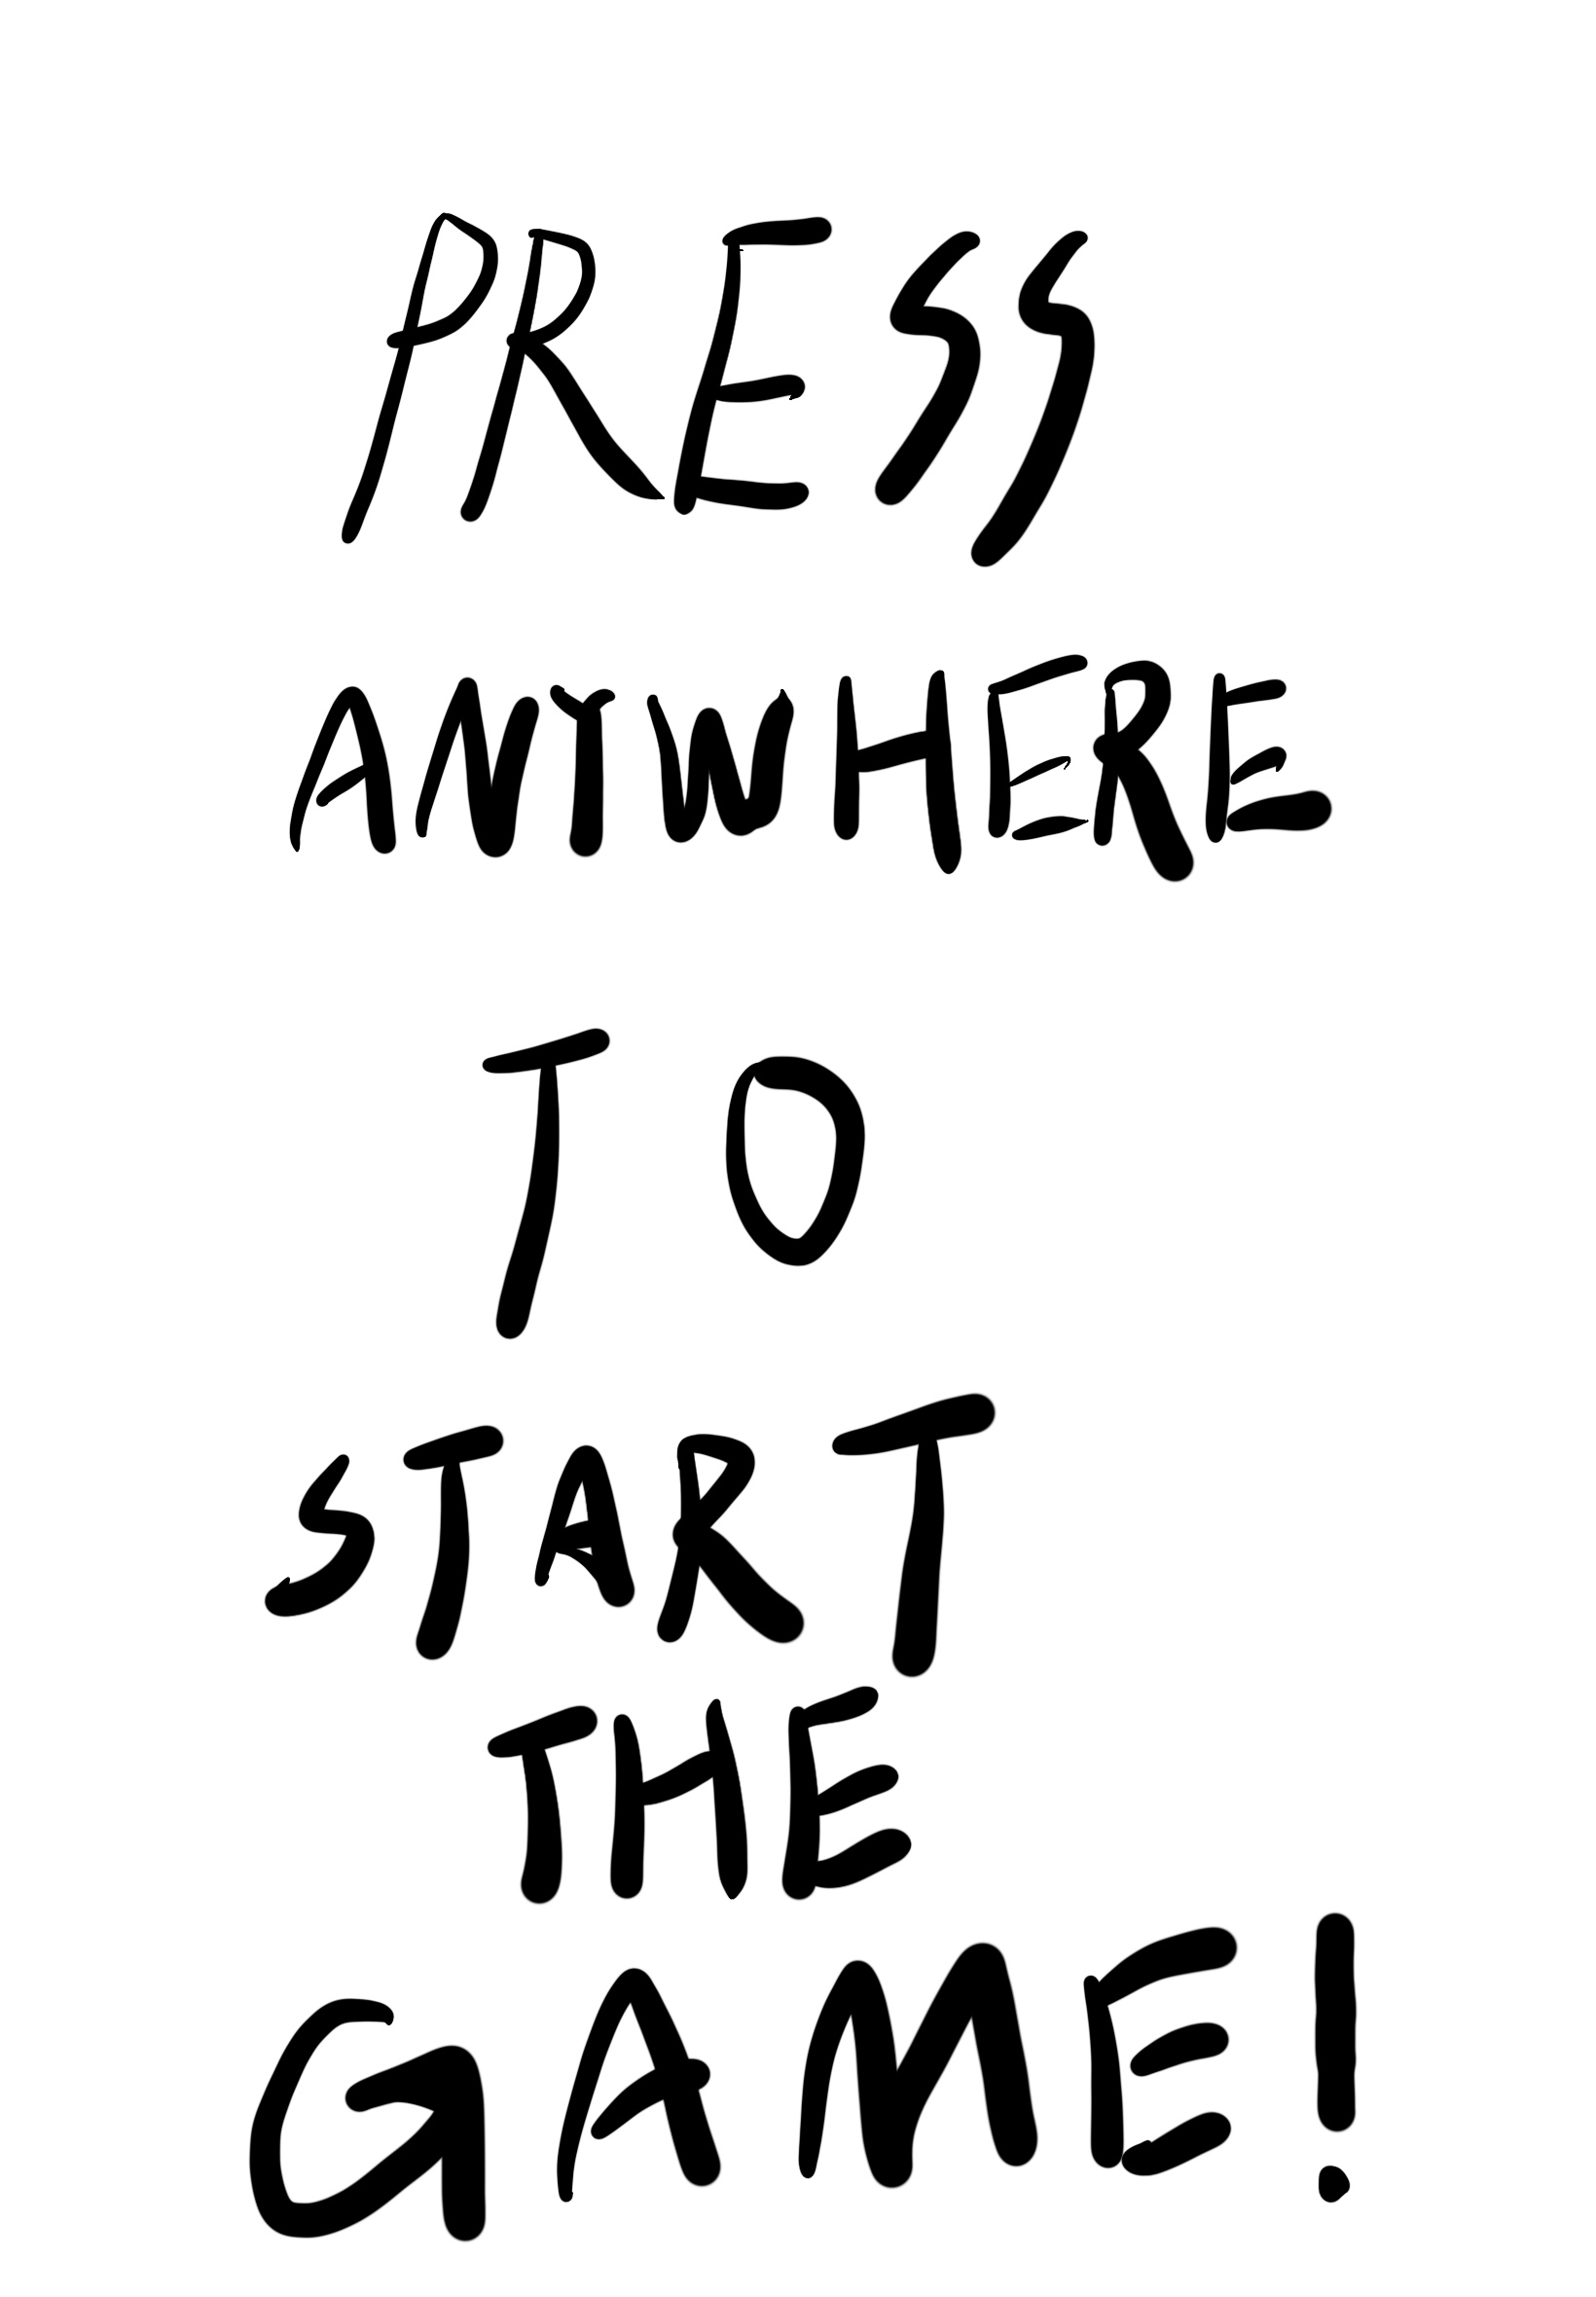 PRESS
ANYWHERE
TO
START
THE
GAME!